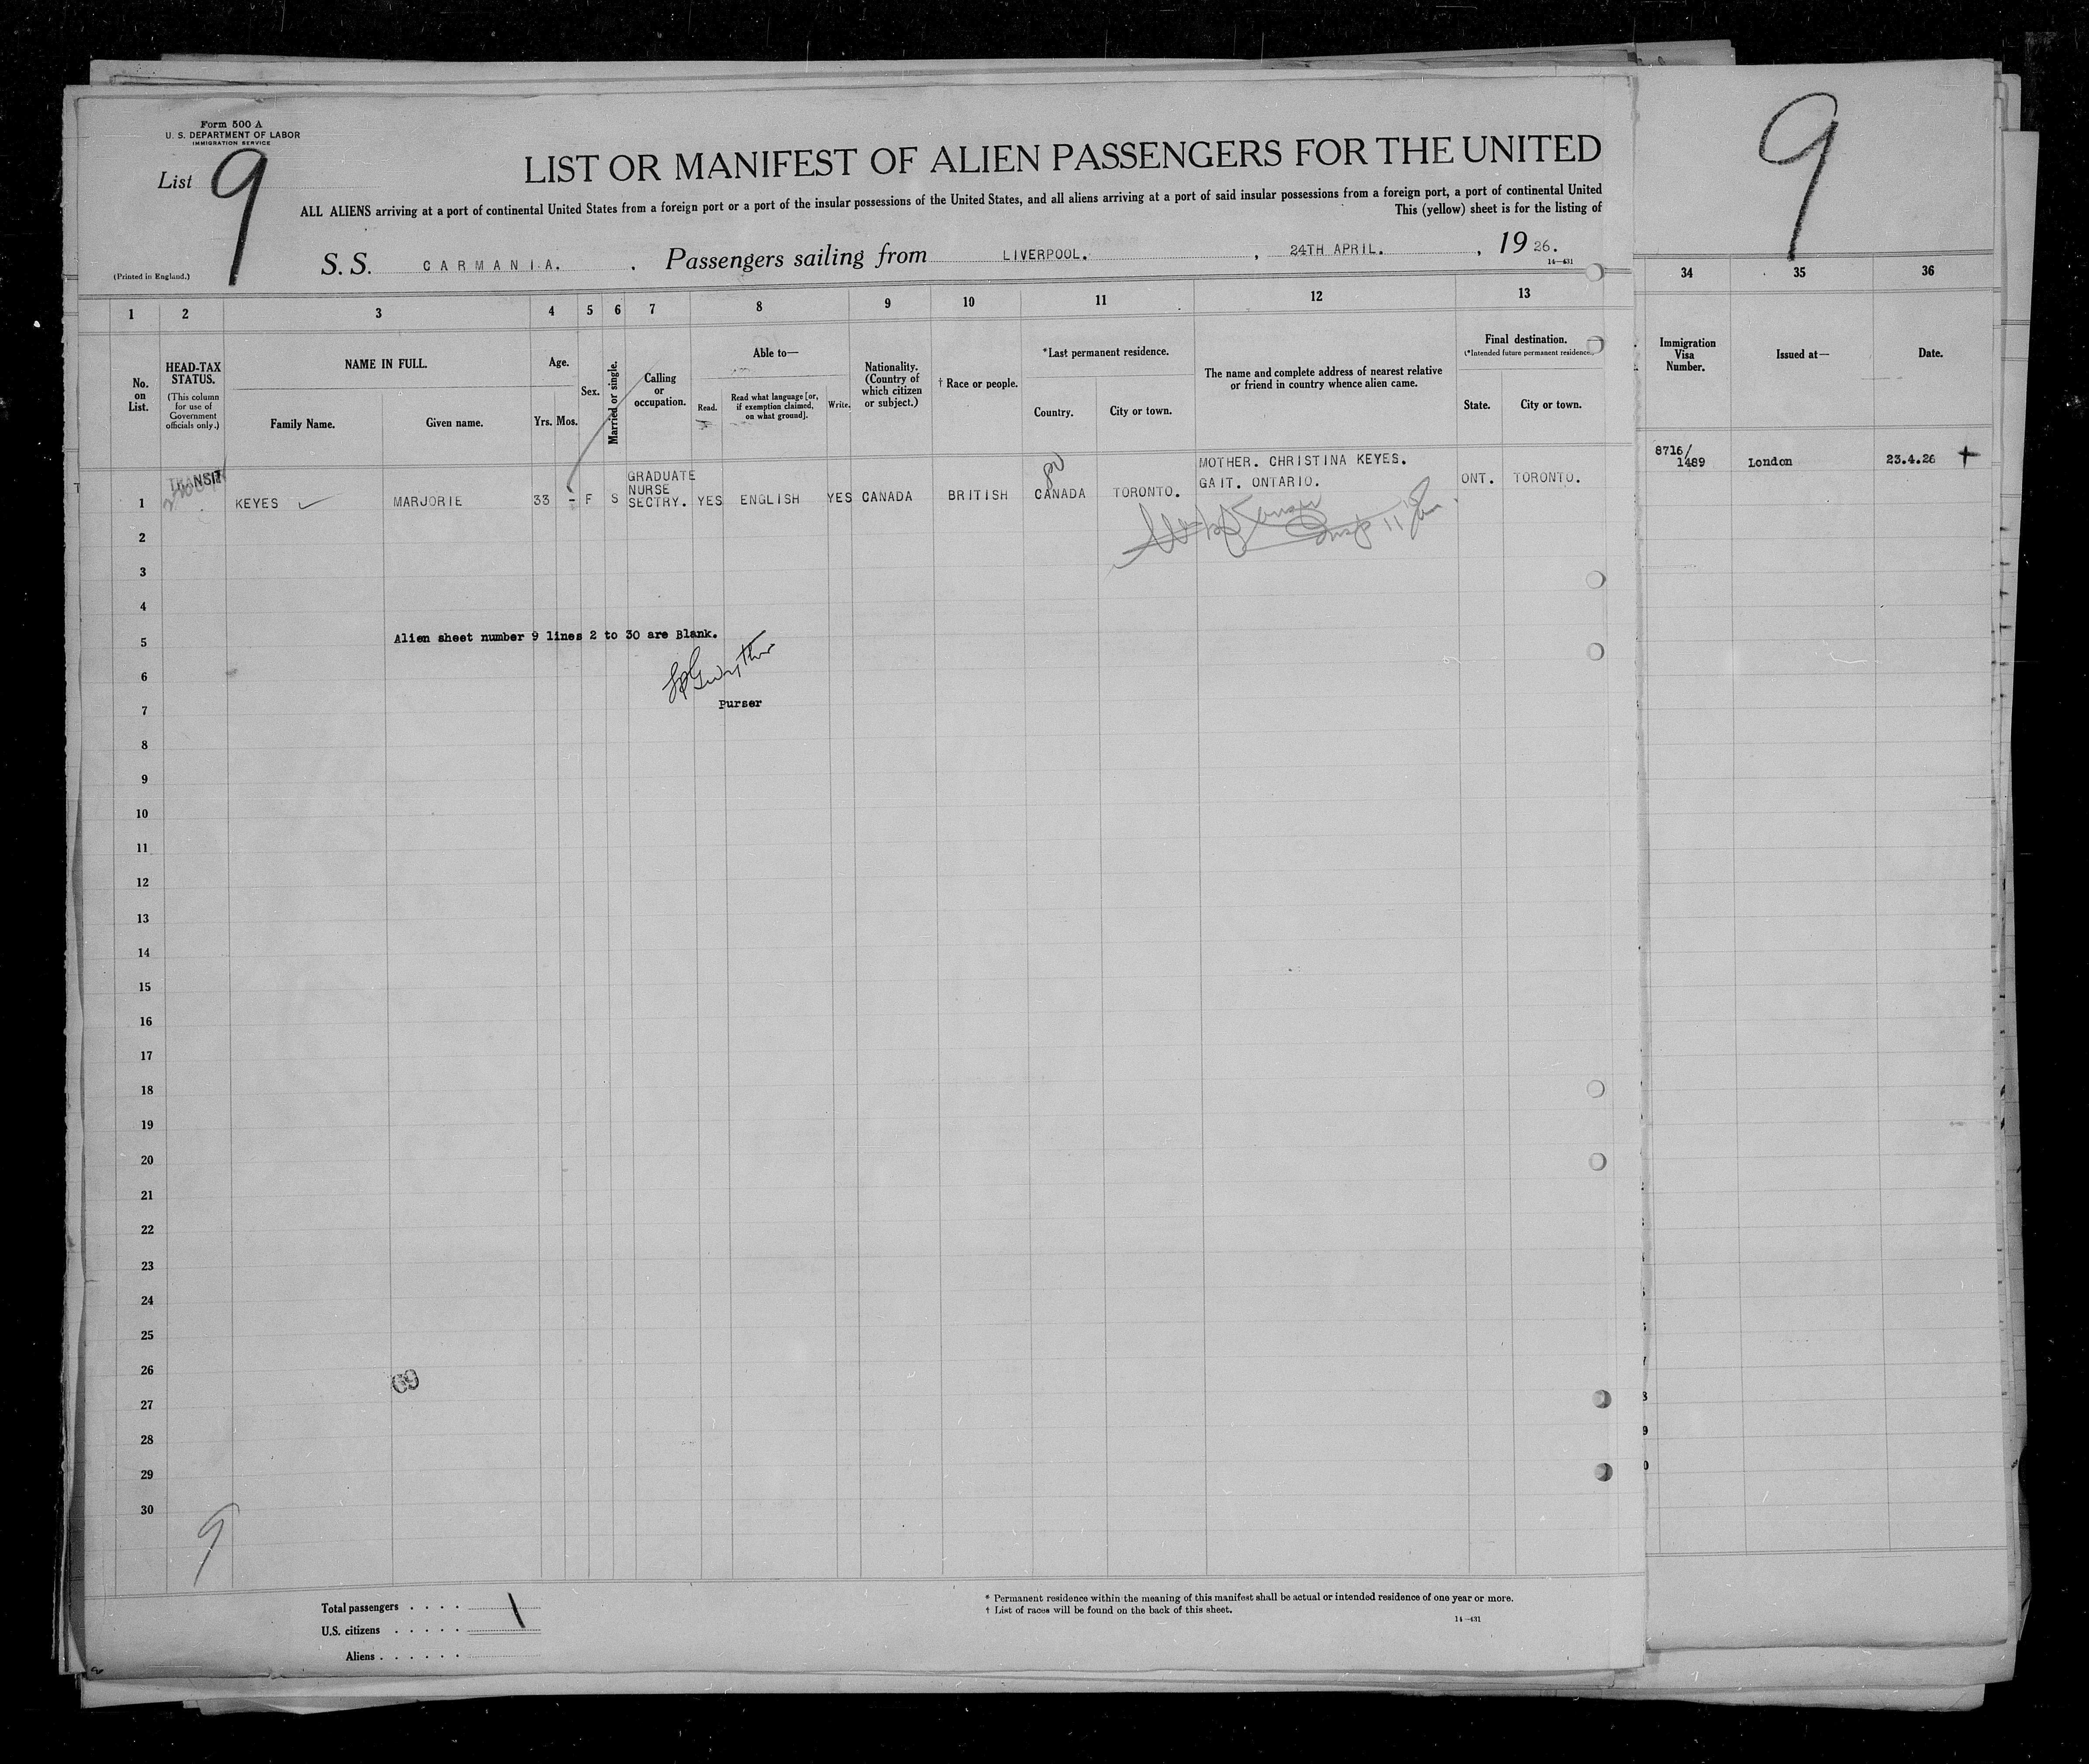 Form 500 A
U. S. DEPARTMENT OF LABOR
IMMIGRATION SERVICE
List 9
LIST OR MANIFEST OF ALIEN PASSENGERS FOR THE UNITED
ALL ALIENS arriving at a port of continental United States from a foreign port or a port of the insular possessions of the United States, and all aliens arriving at a port of said insular possessions from a foreign port, a port of continental United
This (yellow) sheet is for the listing of
(Printed in England.)
S. S. CARMANIA. , Passengers sailing from LIVERPOOL. , 24TH APRIL. , 19 26.
14—431
9
1 2 3 4 5 6 7 8 9 10 11 12 13
34 35 36
No. on List.
HEAD-TAX STATUS.
(This column for use of Government officials only.)
NAME IN FULL.
Family Name.
Given name.
Age.
Yrs. Mos.
Sex.
Married or single.
Calling or occupation.
Able to—
Read.
Read what language [or, if exemption claimed, on what ground].
Write.
Nationality. (Country of which citizen or subject.)
† Race or people.
*Last permanent residence.
Country.
City or town.
The name and complete address of nearest relative or friend in country whence alien came.
Final destination.
(*Intended future permanent residence.)
State.
City or town.
Immigration Visa Number.
Issued at—
Date.
1 TRANSIT KEYES ✓ MARJORIE 33 - F S GRADUATE NURSE SECTRY. YES ENGLISH YES CANADA BRITISH CANADA TORONTO. MOTHER. CHRISTINA KEYES. GAIT. ONTARIO. ONT. TORONTO.
8716/1489 London 23.4.26 +
2
3
4
5
Alien sheet number 9 lines 2 to 30 are Blank.
6
7
Purser
8
9
10
11
12
13
14
15
16
17
18
19
20
21
22
23
24
25
26
69
27
28
29
30
9
Total passengers . . . . 1
U.S. citizens . . . . .
Aliens . . . . . .
* Permanent residence within the meaning of this manifest shall be actual or intended residence of one year or more.
† List of races will be found on the back of this sheet.
14—431